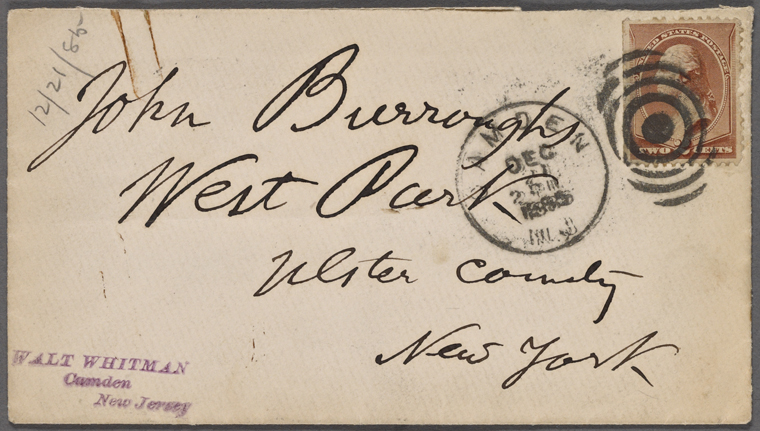 12/21/85
UNITED STATES POSTAGE
TWO CENTS
John Burroughs
CAMDEN
DEC
21
1885
N.J.
West Park
Ulster County
New York
WALT WHITMAN
Camden
New Jersey